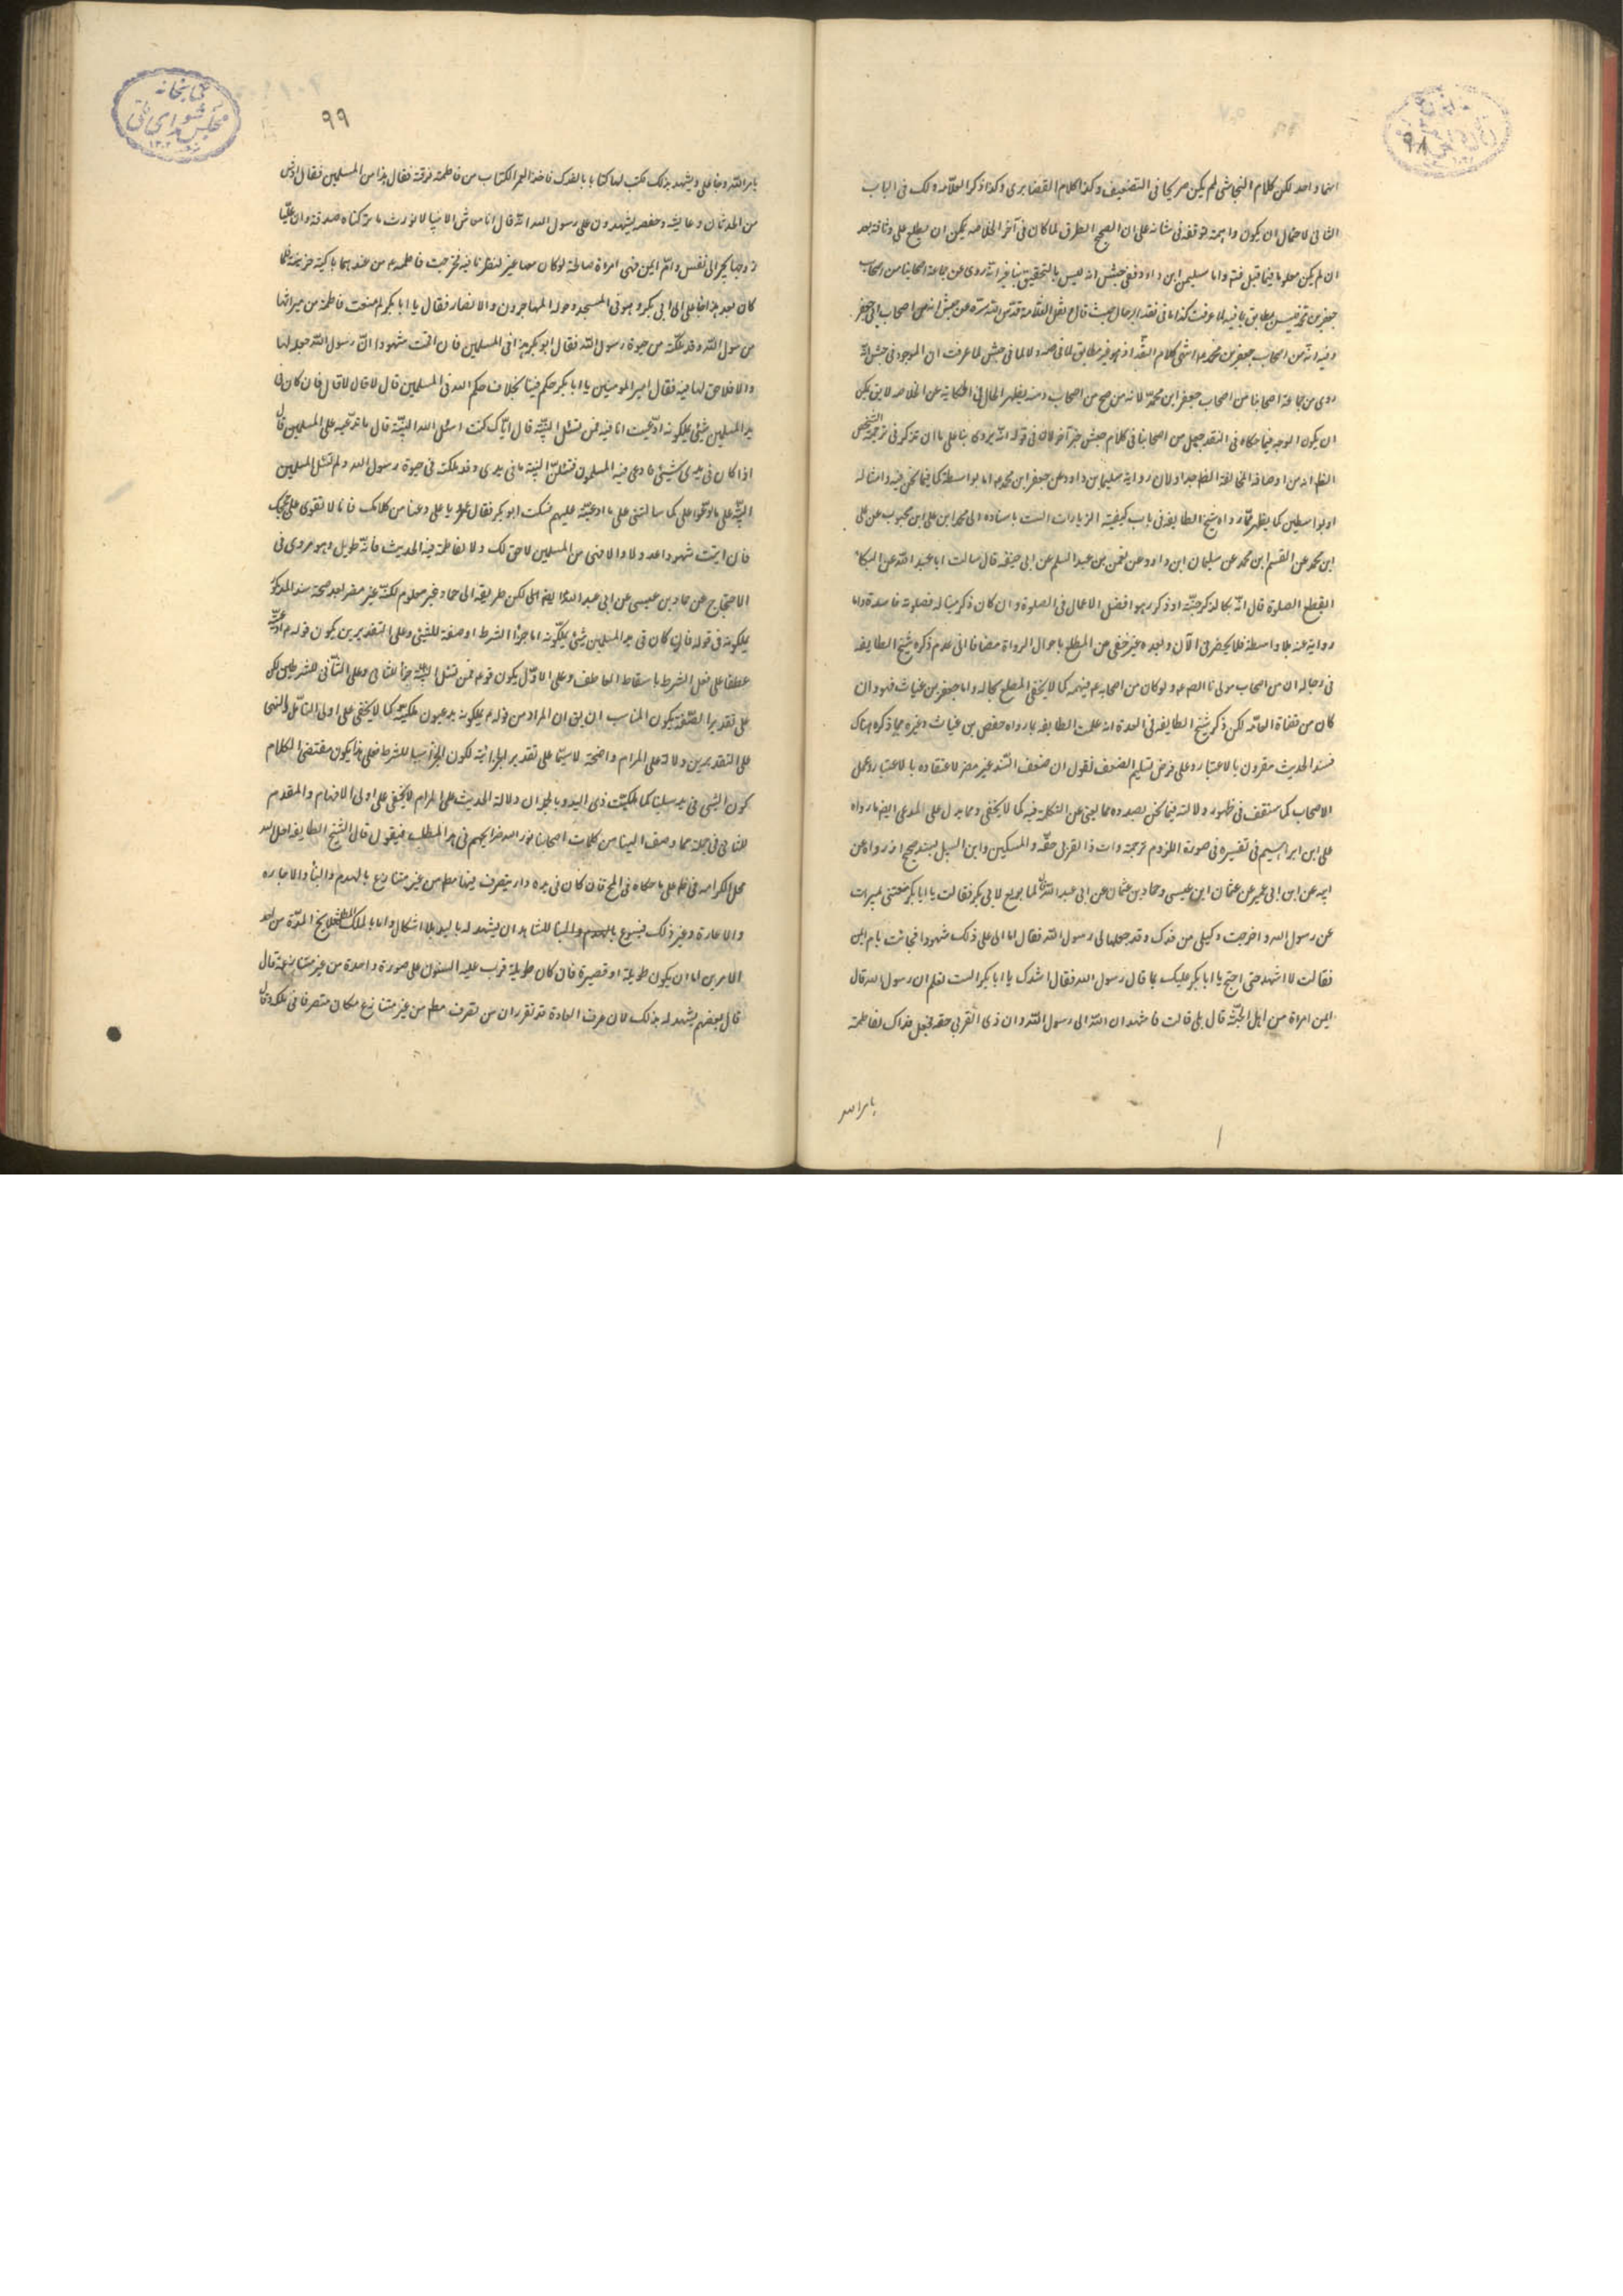 ۹۸
انما واحد لكن كلام النجاشى لم يكن صريحا فى التضعيف وكذا كلام الغضايرى وكذا ذكر العلامه ذلك فى الباب
الثانى لاحتمال ان يكون توقفه فى شانه على ان الصحيح الطرق لما كان فى آخر الخلاصه يمكن ان يطلع على وثاقته بعد
ان لم يكن معلوما فيما قبل واما سليمن ابن داود ففى جش انه ليس بالتحقيق بنا غير انه روى عن جماعة اصحابنا من اصحاب
جعفر بن محمد لما عرفت كذا ما فى نقد الرجال حيث قال نقل العلامة قدس الله سره عن جش انه من اصحاب ابى جعفر
وفيه انه من اصحاب جعفر بن محمد انتهى كلام النقد اذ هو غير مطابق لما فى صه ولا لما فى جش لما عرفت ان الموجود فى جش انه
روى عن جماعة اصحابنا من اصحاب جعفر ابن محمد لا انه من اصحاب ومنه يظهر الحال فى الحكاية عن الخلاصه لا يق يمكن
ان يكون الوجه فيما حكاه فى النقد جعل من اصحابنا فى كلام جش خبرا آخر لان فى قوله انه يروى بنا على ما ان تذكر فى ترجمة الشخص
الظاهر انه من اوصافه المخالفة الظاهر جدا ولان رواية سليمان بن داود عن جعفر ابن محمد اما بواسطة كما فيما نحن فيه وامثاله
او بواسطتين كما يظهر مما رواه شيخ الطايفه فى باب كيفية الزيارات الست باسناده الى محمد ابن على ابن محبوب عن على
ابن محمد عن القسم ابن محمد عن سليمان ابن داود عن نعمن بن عبد السلم عن ابى حنيفه قال سالت ابا عبد الله عن البكاء
ايقطع الصلوة قال ان بكا لذكر جنة او ذكر نار هو افضل الاعمال فى الصلوة وان كان ذكر ميتا له فصلوته فاسدة واما
رواية عنه بلا واسطة فلا يحضرنى الآن وبعده غير خفى من المطلع باحوال الرواة مضافا الى عدم ذكره شيخ الطايفه
فى رجاله ان من اصحاب مولانا الصم ولو كان من اصحابه فيهم كما لا يخفى المطلع بحاله واما حفص بن غياث فهو وان
كان من قضاة العامه لكن ذكر شيخ الطايفه فى العدة انه عملت الطايفه بما رواه حفص بن غياث وغيره مما ذكره هناك
فسند الحديث مقرون بالاعتبار وعلى فرض تسليم الضعف نقول ان ضعف السند غير مضر لاعتقاده بالاعتبار وعمل
الاصحاب كما ستقف فى ظهور دلالته فيما نحن بصدده مما يغنى عن التكلم فيه كما لا يخفى ومما يدل على المدعى ايض ما رواه
على ابن ابراهيم فى تفسيره فى صورة الروم ترجمة وات ذا القربى حقه والمسكين وابن السبيل بسند صحيح اذ رواه عن
ابيه عن ابن ابى عمير عن عثمان ابن عيسى وحماد بن عثمان عن ابى عبد الله لما بويع لابى بكر فقالت يا ابا بكر منعتنى ميراث
عن رسول الله واخرجت وكيلى من فدك وقد جعلها لى رسول الله فقال لها اتى على ذلك شهودا فجائت بام ايمن
فقالت لا اشهد حتى احتج يا ابا بكر عليك بما قال رسول الله فقال انشدك يا ابا بكر الست تعلم ان رسول الله قال
ايمن امراة من اهل الجنة قال بلى قالت فاشهد ان الله الى رسول الله وان ذى القربى حقه فجعل فداك لفاطمة
بامر الله
كتابخانه
مجلس شوراى ملى
۹۹
بامر الله وجا على ويشهد بذلك فكتب لها كتابا بالفدك فاخذ العمر الكتاب من فاطمة فمزقه فقال هذا من المسلمين فقال اوس
من الحدثان وعايشه وحفصه يشهدون على رسول الله انه قال انا معاشر الانبيا لا نورث ما تركناه صدقه وان عليا
زوجها يجر الى نفسه وام ايمن فهى امراة صالحة لو كان معها غيرها لنظرنا فيه فخرجت فاطمه من عندهما باكية حزينة فلما
كان بعد هذا جا على الى ابى بكر وهو فى المسجد وحوله المهاجرون والانصار فقال يا ابا بكر لم منعت فاطمة من ميراثها
من رسول الله وقد ملكته من حيوة رسول الله فقال ابو بكر هذا فى المسلمين فان اقامت شهودا ان رسول الله جعله لها
والا فلا حق لها فيه فقال امير المومنين يا ابا بكر تحكم فينا بخلاف حكم الله فى المسلمين قال لا قال فان كان فى
يد المسلمين شيئ يملكونه ادعيت انا فيه فمن تسئل البينة قال اياك كنت اسئل البينة قال ما تدعيه على المسلمين قال
اذا كان فى يدى شيئ فادعى فيه المسلمون فتسئلنى البينة ما فى يدى وقد ملكته فى حيوة رسول الله ولم تسئل المسلمين
البينة على ما ادعوا على كما سالتنى على ما ادعيته عليهم فسكت ابو بكر فقال عمر يا على دعنا من كلامك فانا لا نقوى على حججك
فان اتيت شهودا عدولا والا فهى من المسلمين لا حق لك ولا لفاطمة فيه الحديث فانه طويل وهو مروى فى
الاحتجاج عن حماد بن عيسى عن ابى عبد الله ايض الى لكن طريقه الى حماد غير معلوم لكنه غير مضر بعد صحة سند المذكور
يملكونه فى قوله فان كان فى يد المسلمين شيئ يملكونه اما جزأ الشرط او صفة للشيئ وعلى التقديرين يكون قوله ادعيت
عطفا على فعل الشرط باسقاط العاطف وعلى الاول يكون قوله فمن تسئل البينة جزأ للثانى وعلى الثانى للشرطين لكن
على تقدير الصفة يكون المناسب ان يق ان المراد من قوله يملكونه يدعون ملكيته كما لا يخفى على اولى التامل والنهى
على التقديرين دلالته على المرام واضحة لا سيما على تقدير الجزائية لكون الجزا سببا للشرط فعلى هذا يكون مقتضى الكلام
كون الشيئ فى يد سببا كما لملكيت ذى اليد وبالجمله ان دلالة الحديث على المرام لا يخفى على اولى الافهام والمقدم
للثانى فى جملة مما وصف الينا من كلمات اصحابنا نور الله ضرايحهم فى هذا المطلب فنقول قال الشيخ الطايفه احل الله
محل الكرامه فى ف على ما حكاه فى المخ فان كان فى يده دار يتصرف فيها مطم من غير منازع بالهدم والبنا والاجاره
والاعارة وغير ذلك فيسوغ للشاهد ان يشهد له باليد بلا اشكال واما بالملك المطلق فلا يخ المدة من احد
الامرين اما ان يكون طويلة او قصيرة فان كان طويلة فرب عليه السنون على صورة واحدة من غير منازعة قال
قال بعضهم يشهد له بذلك لان عرف العادة قد تقرر ان من تصرف مطم من غير منازع مكان متصرفا فى ملكه وقال